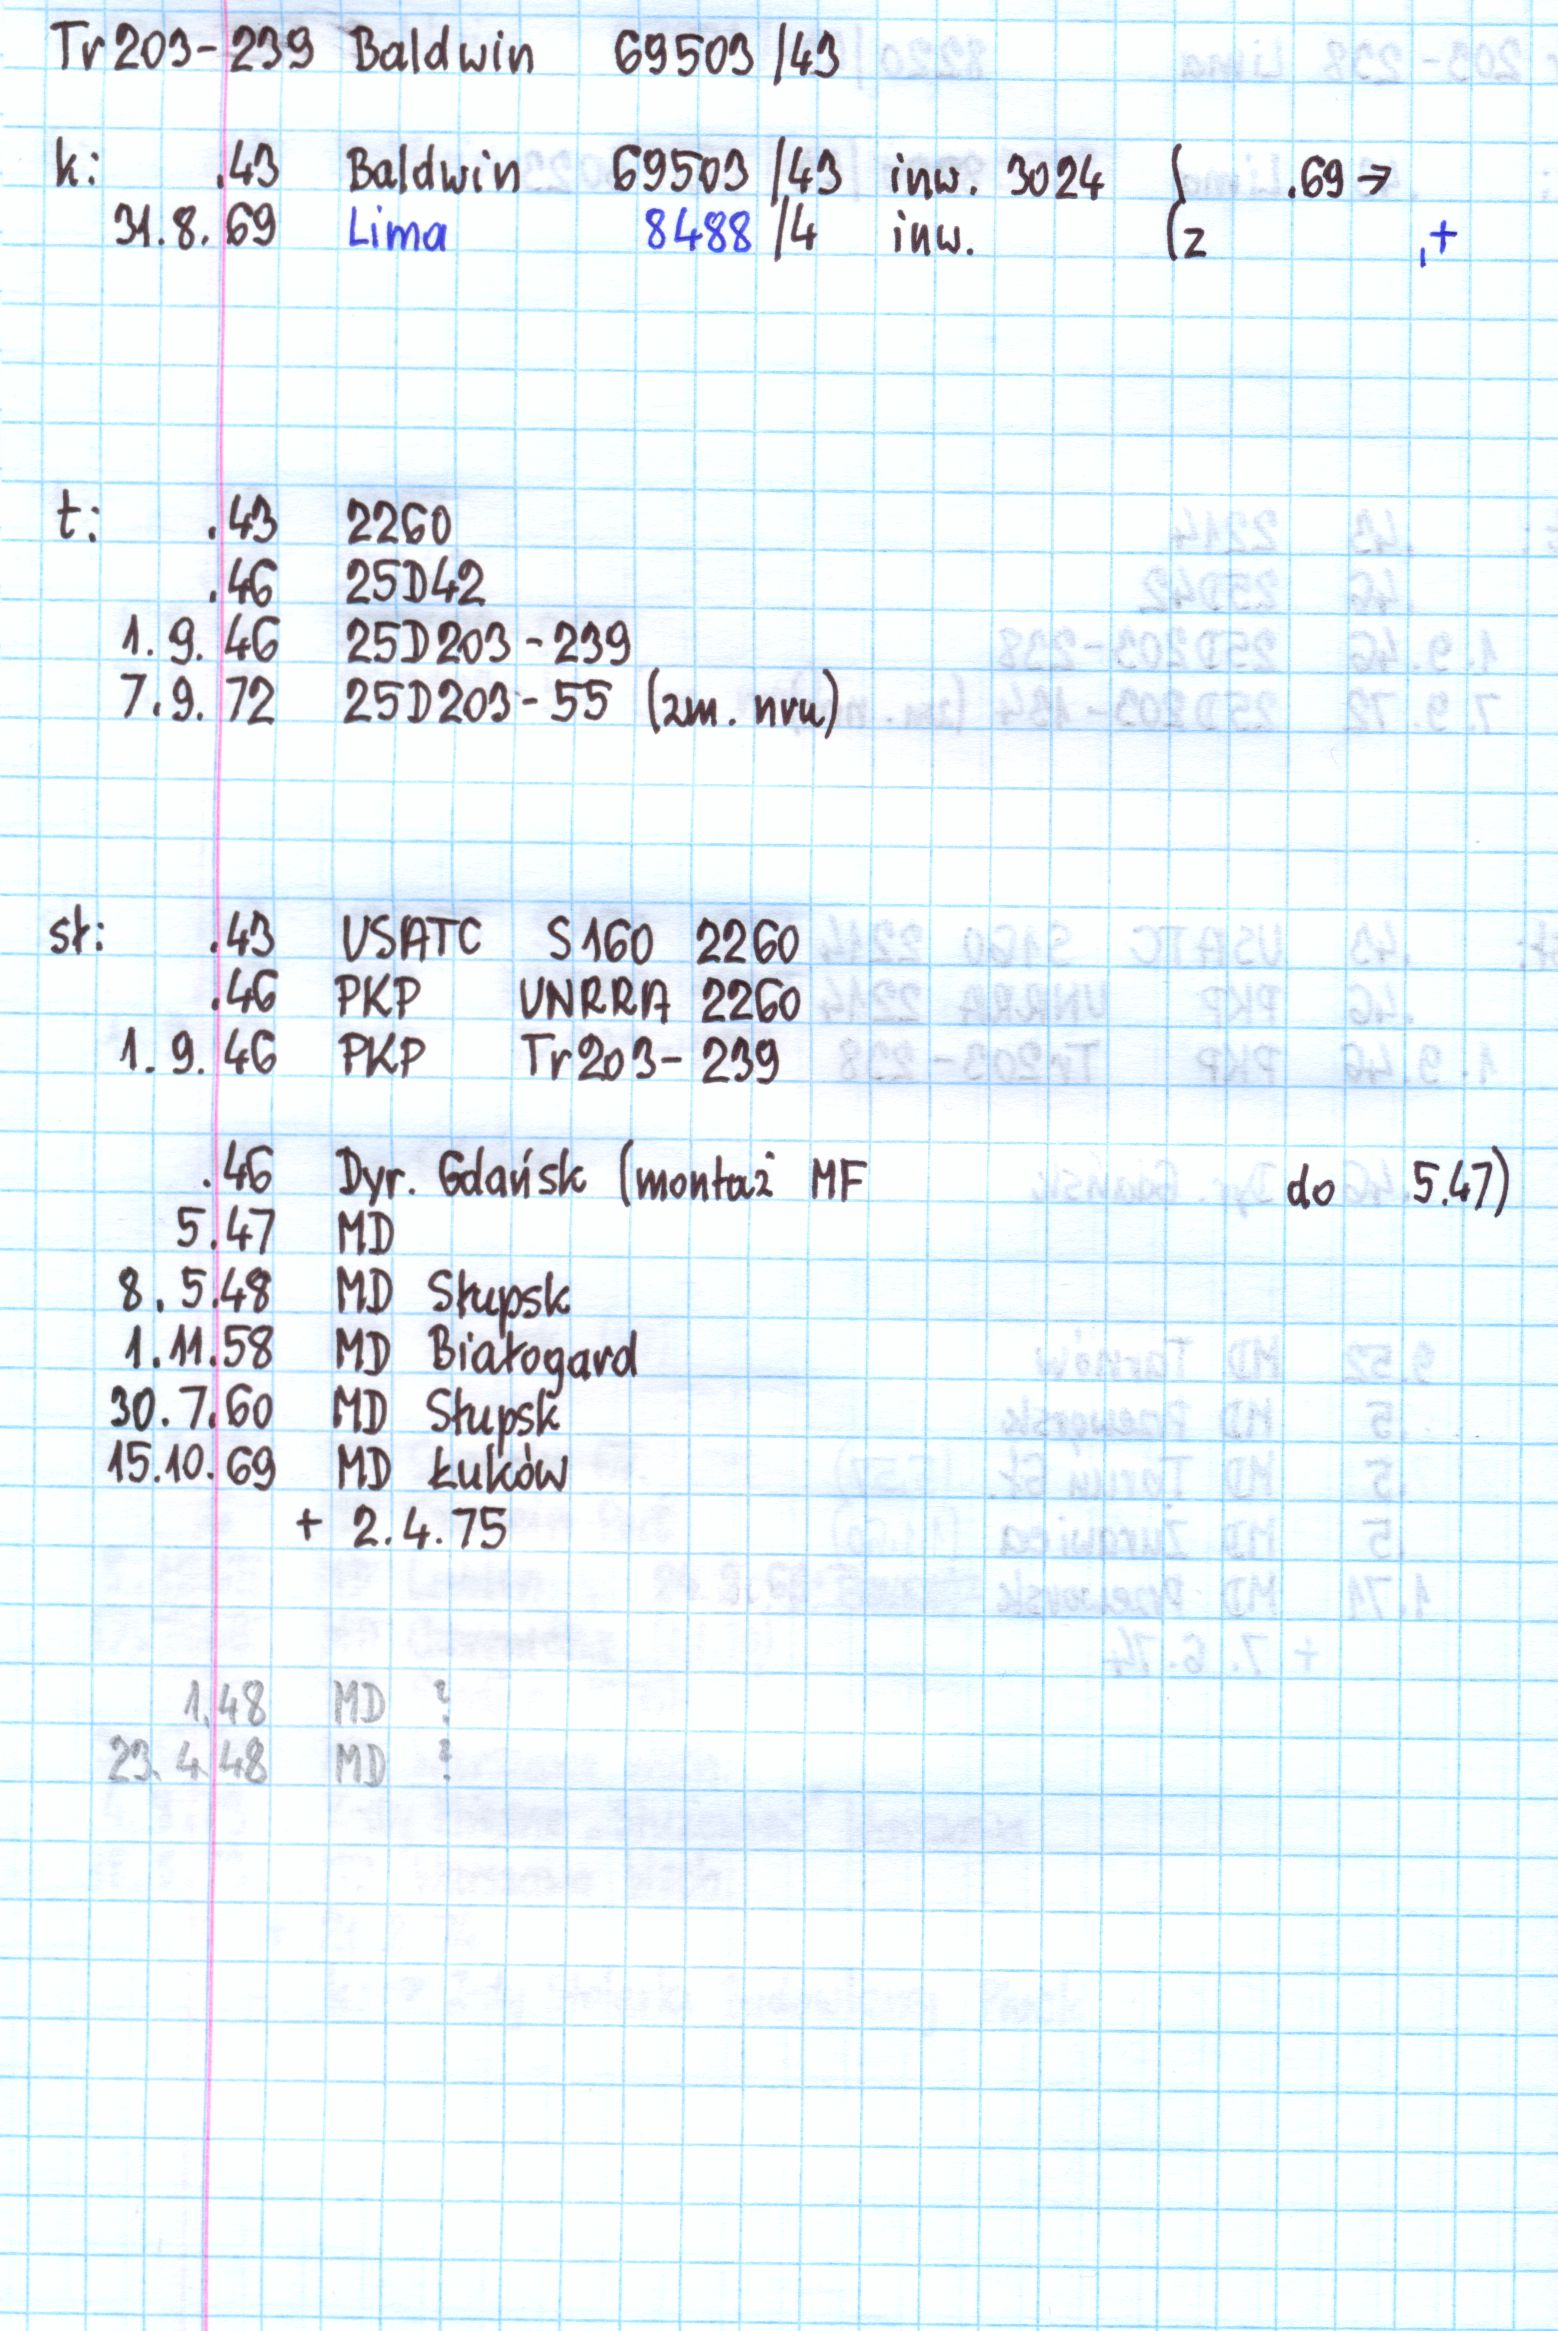 Tr203-239 Baldwin 69503/43
k: .43 Baldwin 69503/43 inw. 3024 ( .69→
31.8.69 Lima 8488/4 inw. (z ,+
t: .43 2260
.46 25D42
1.9.46 25D203-239
7.9.72 25D203-55 (zm. nru)
st: .43 USATC S160 2260
.46 PKP UNRRA 2260
1.9.46 PKP Tr203-239
.46 Dyr. Gdańsk (montaż MF do 5.47)
5.47 MD
8.5.48 MD Słupsk
1.11.58 MD Białogard
30.7.60 MD Słupsk
15.10.69 MD Łuków
+ 2.4.75
1.48 MD ?
23.4.48 MD ?